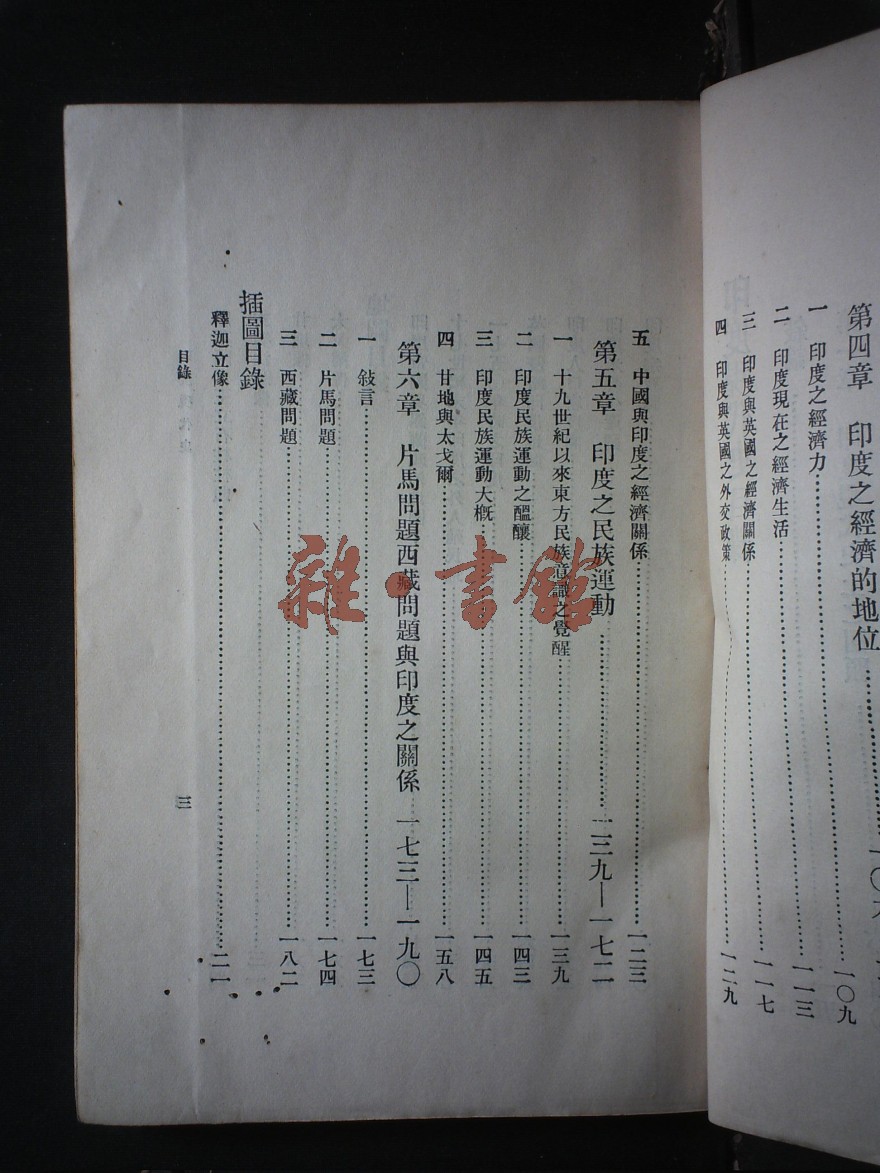 第四章 印度之經濟的地位
一 印度之經濟力 一〇九
二 印度現在之經濟生活 一一三
三 印度與英國之經濟關係 一一七
四 印度與英國之外交政策 一二九
五 中國與印度之經濟關係 一二三
第五章 印度之民族運動 一三九—一七二
一 十九世紀以來東方民族意識之覺醒 一三九
二 印度民族運動之醞釀 一四三
三 印度民族運動大概 一四五
四 甘地與太戈爾 一五八
第六章 片馬問題西藏問題與印度之關係 一七三—一九〇
一 敍言 一七三
二 片馬問題 一七四
三 西藏問題 一八二
插圖目錄
釋迦立像 二一
目錄 三
雜·書館